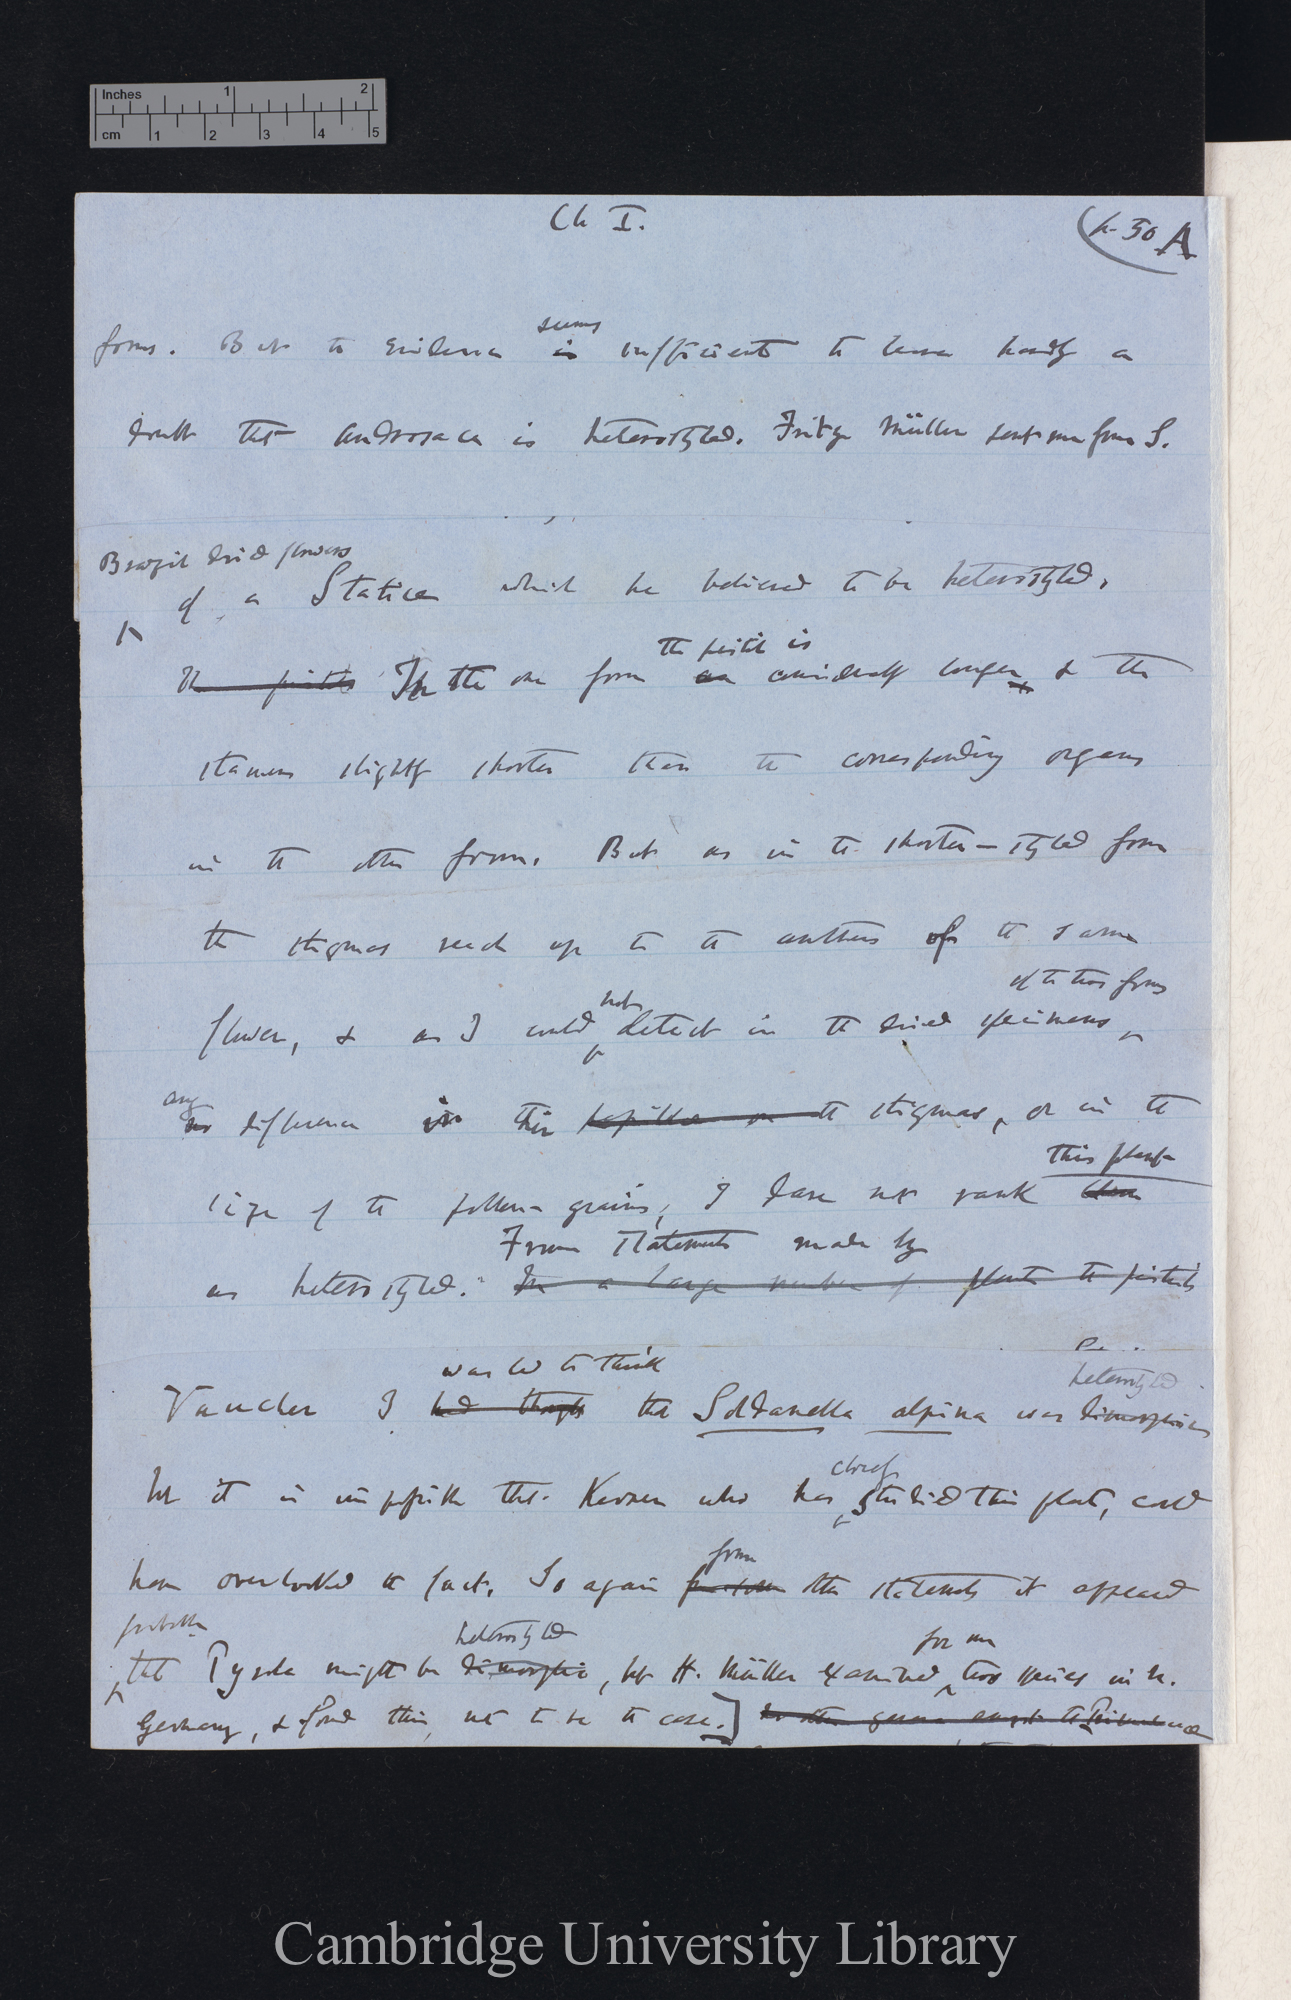 Inches 1 2
cm 1 2 3 4 5
Ch I.
(p. 50 A
seems
forms. But the evidence is sufficient to leave hardly a
doubt that Androsace is heterostyled. Fritz Müller sent me from S.
Brazil dried flowers
of a Statice which he believed to be heterostyled.
the pistil is
The pistils In the one form are considerably longer & the
stamens slightly shorter than the corresponding organs
in the other form. But as in the shorter-styled form
the stigmas reach up to the anthers of the same
of the two forms
not
flower, & as I could detect in the dried specimens
any
no difference in their papillae on the stigmas, or in the
this plant
size of the pollen-grains, I dare not rank them
From statements made by
as heterostyled. In a large number of plants the pistils
was led to think
heterostyled
Vaucher I had thought that Soldanella alpina was dimorphic
closely
but it is impossible that Kerner who has studied this plant, could
from
have overlooked the fact. So again other statements it appeared
probable
heterostyled
for me
that Pyrola might be dimorphic, but H. Müller examined two species in N.
Germany, & found this not to be the case.] In other genera amongst the Primulaceae
Cambridge University Library